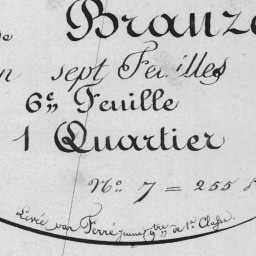 de Branze
n sept Feuilles
6e Feuille
1 Quartier
No. 7 = 255
Levée par Ferré jeune gtre de 1re Classe.